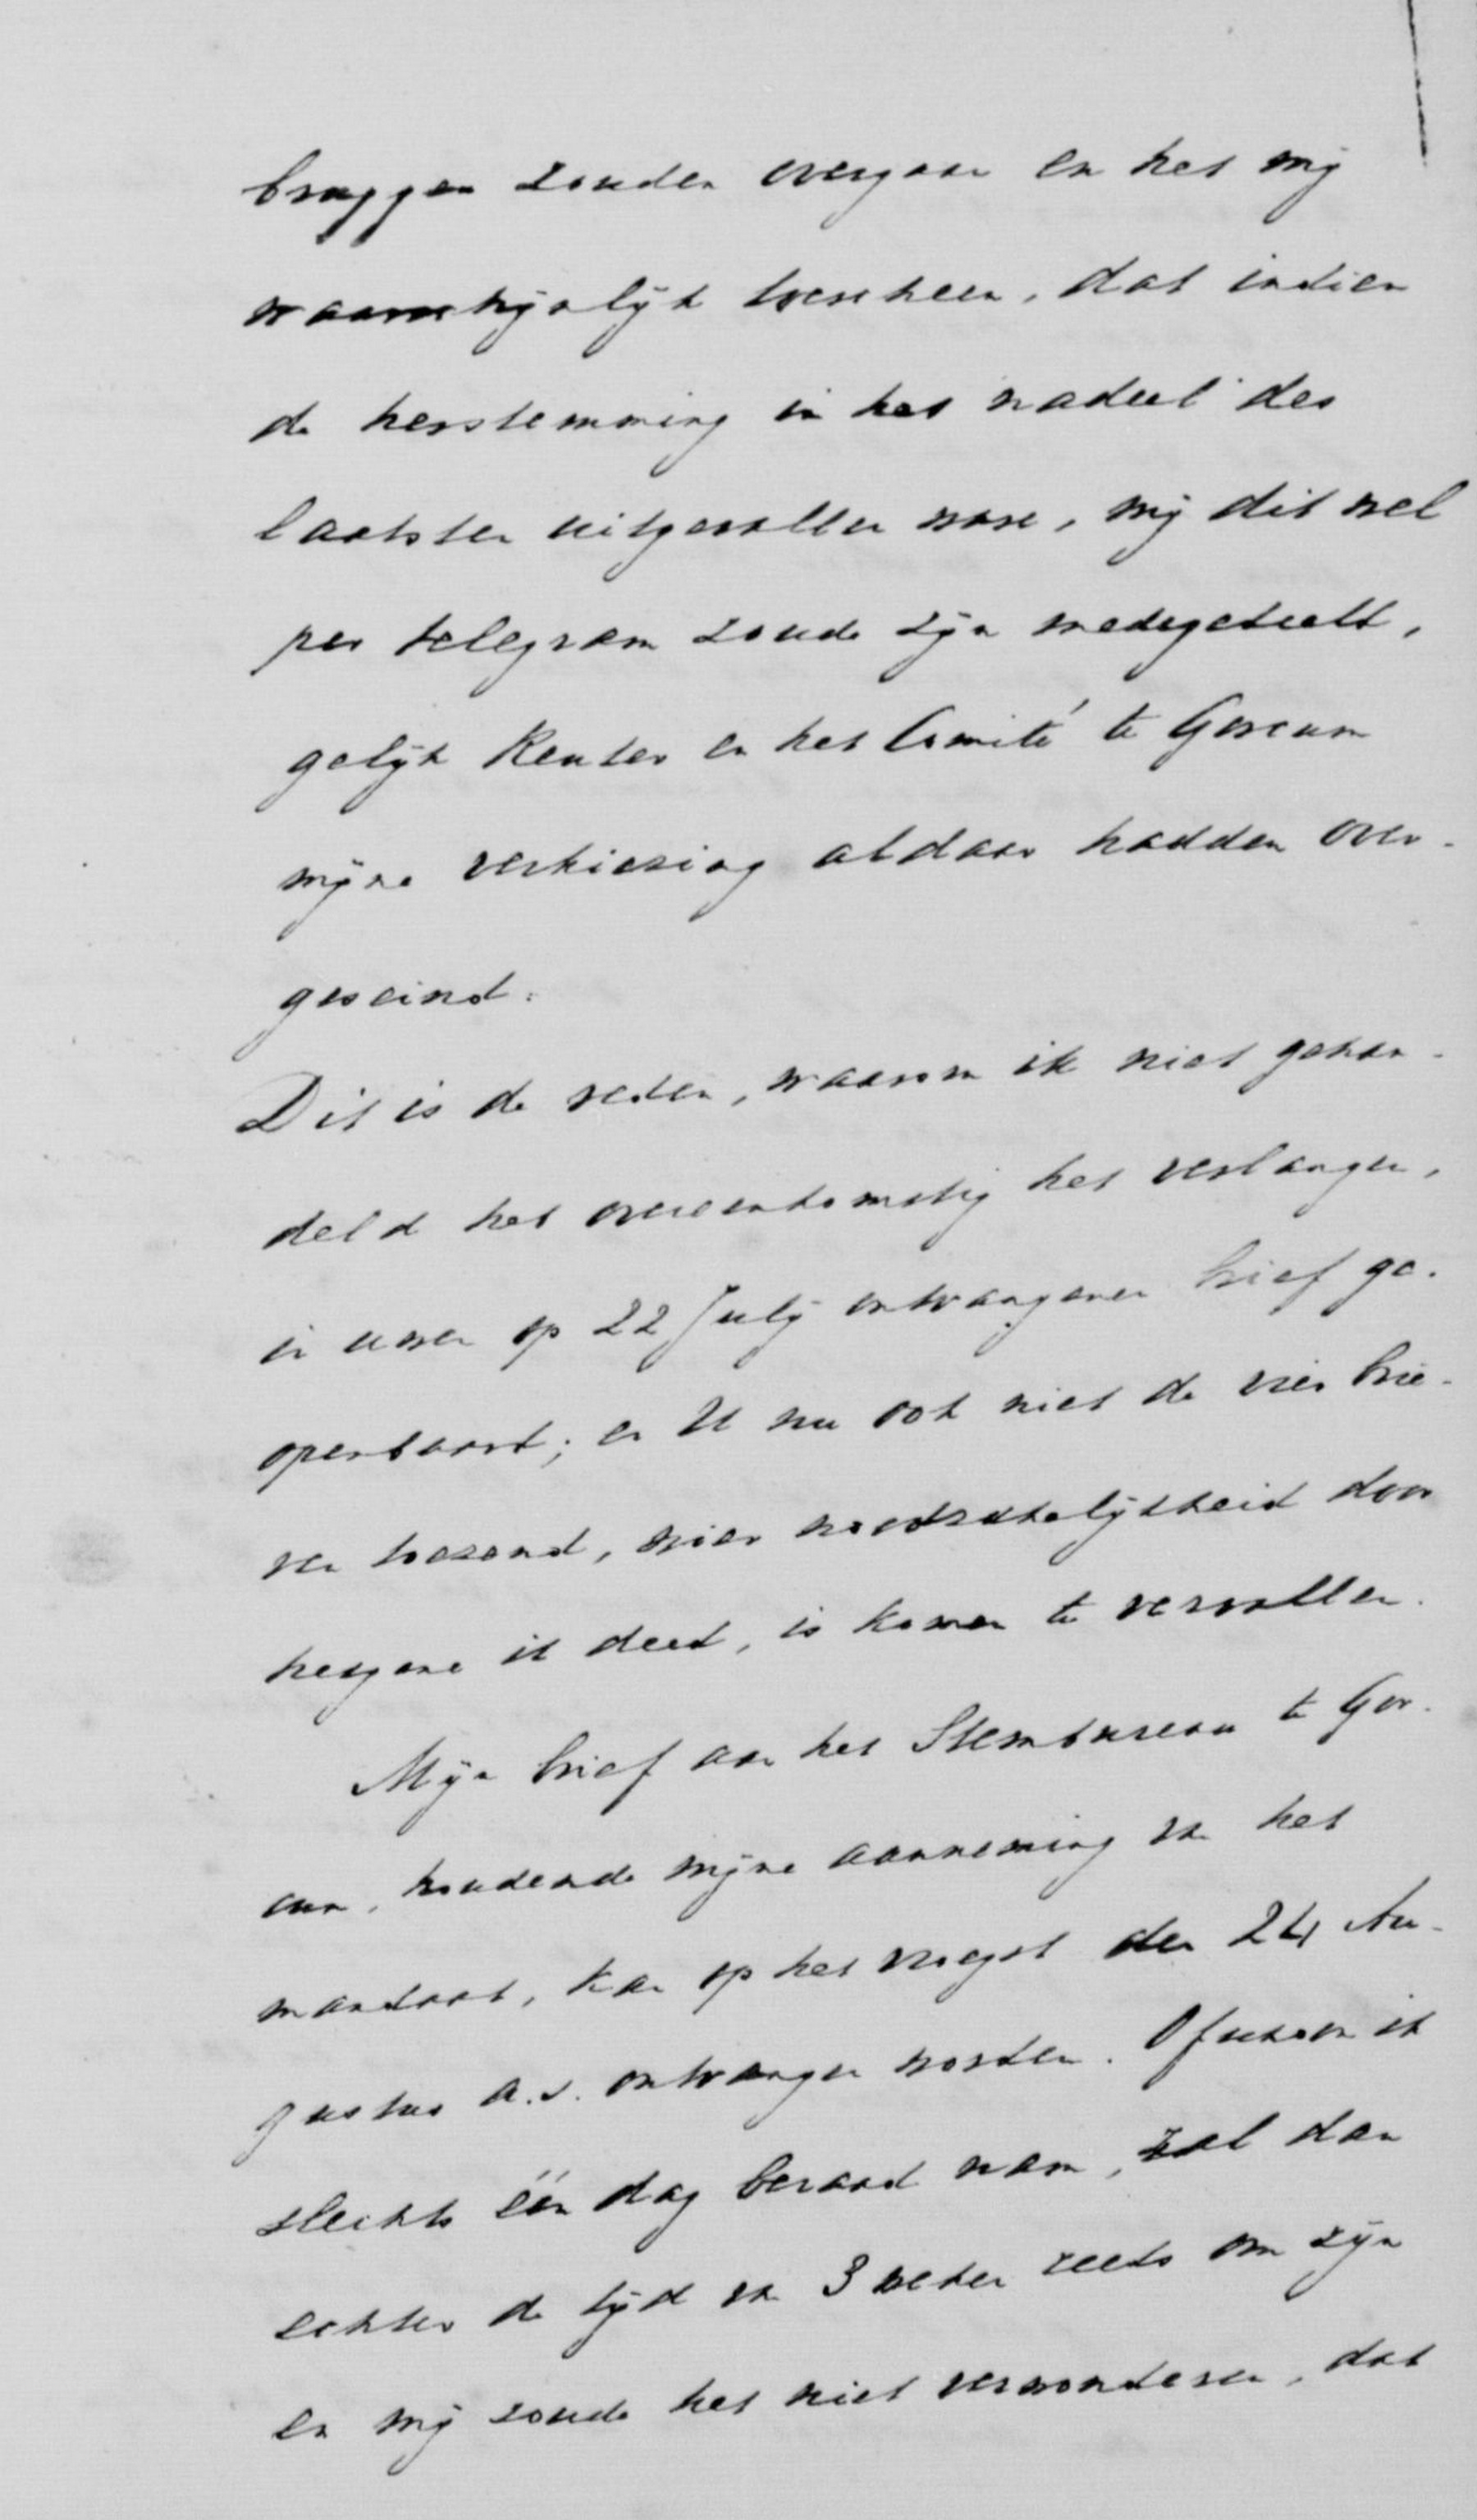 bruggen zouden overgaan en het mij
waarschijnlijk toescheen, dat indien
de herstemming in het nadeel des
laatsten uitgevallen ware, mij dit wel
per telegram zoude zijn medegedeeld,
gelijk Reuter en het Comité te Gorcum
mijne verkiezing aldaar hadden over-
geseind.
Dit is de reden, waarom ik niet gehan-
deld heb overeenkomstig het verlangen,
in uwen op 22 July ontvangenen brief ge-
openbaard; en U nu ook niet de vier brie-
ven toezend, wier noodzakelijkheid door
hetgene ik deed, is komen te vervallen.
Mijn brief aan het Stembureau te Gor-
cum, houdende mijne aanneming van het
mandaat, kan op het vroegst den 24 Au-
gustus a.s. ontvangen worden. Ofschoon ik
slechts één dag beraad nam, zal dan
echter de tijd van 3 weken reeds om zijn
en mij zoude het niet verwonderen, dat